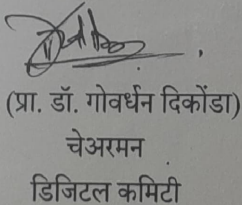 (प्रा. डॉ. गोवर्धन दिकोंडा)
चेअरमन
डिजिटल कमिटी